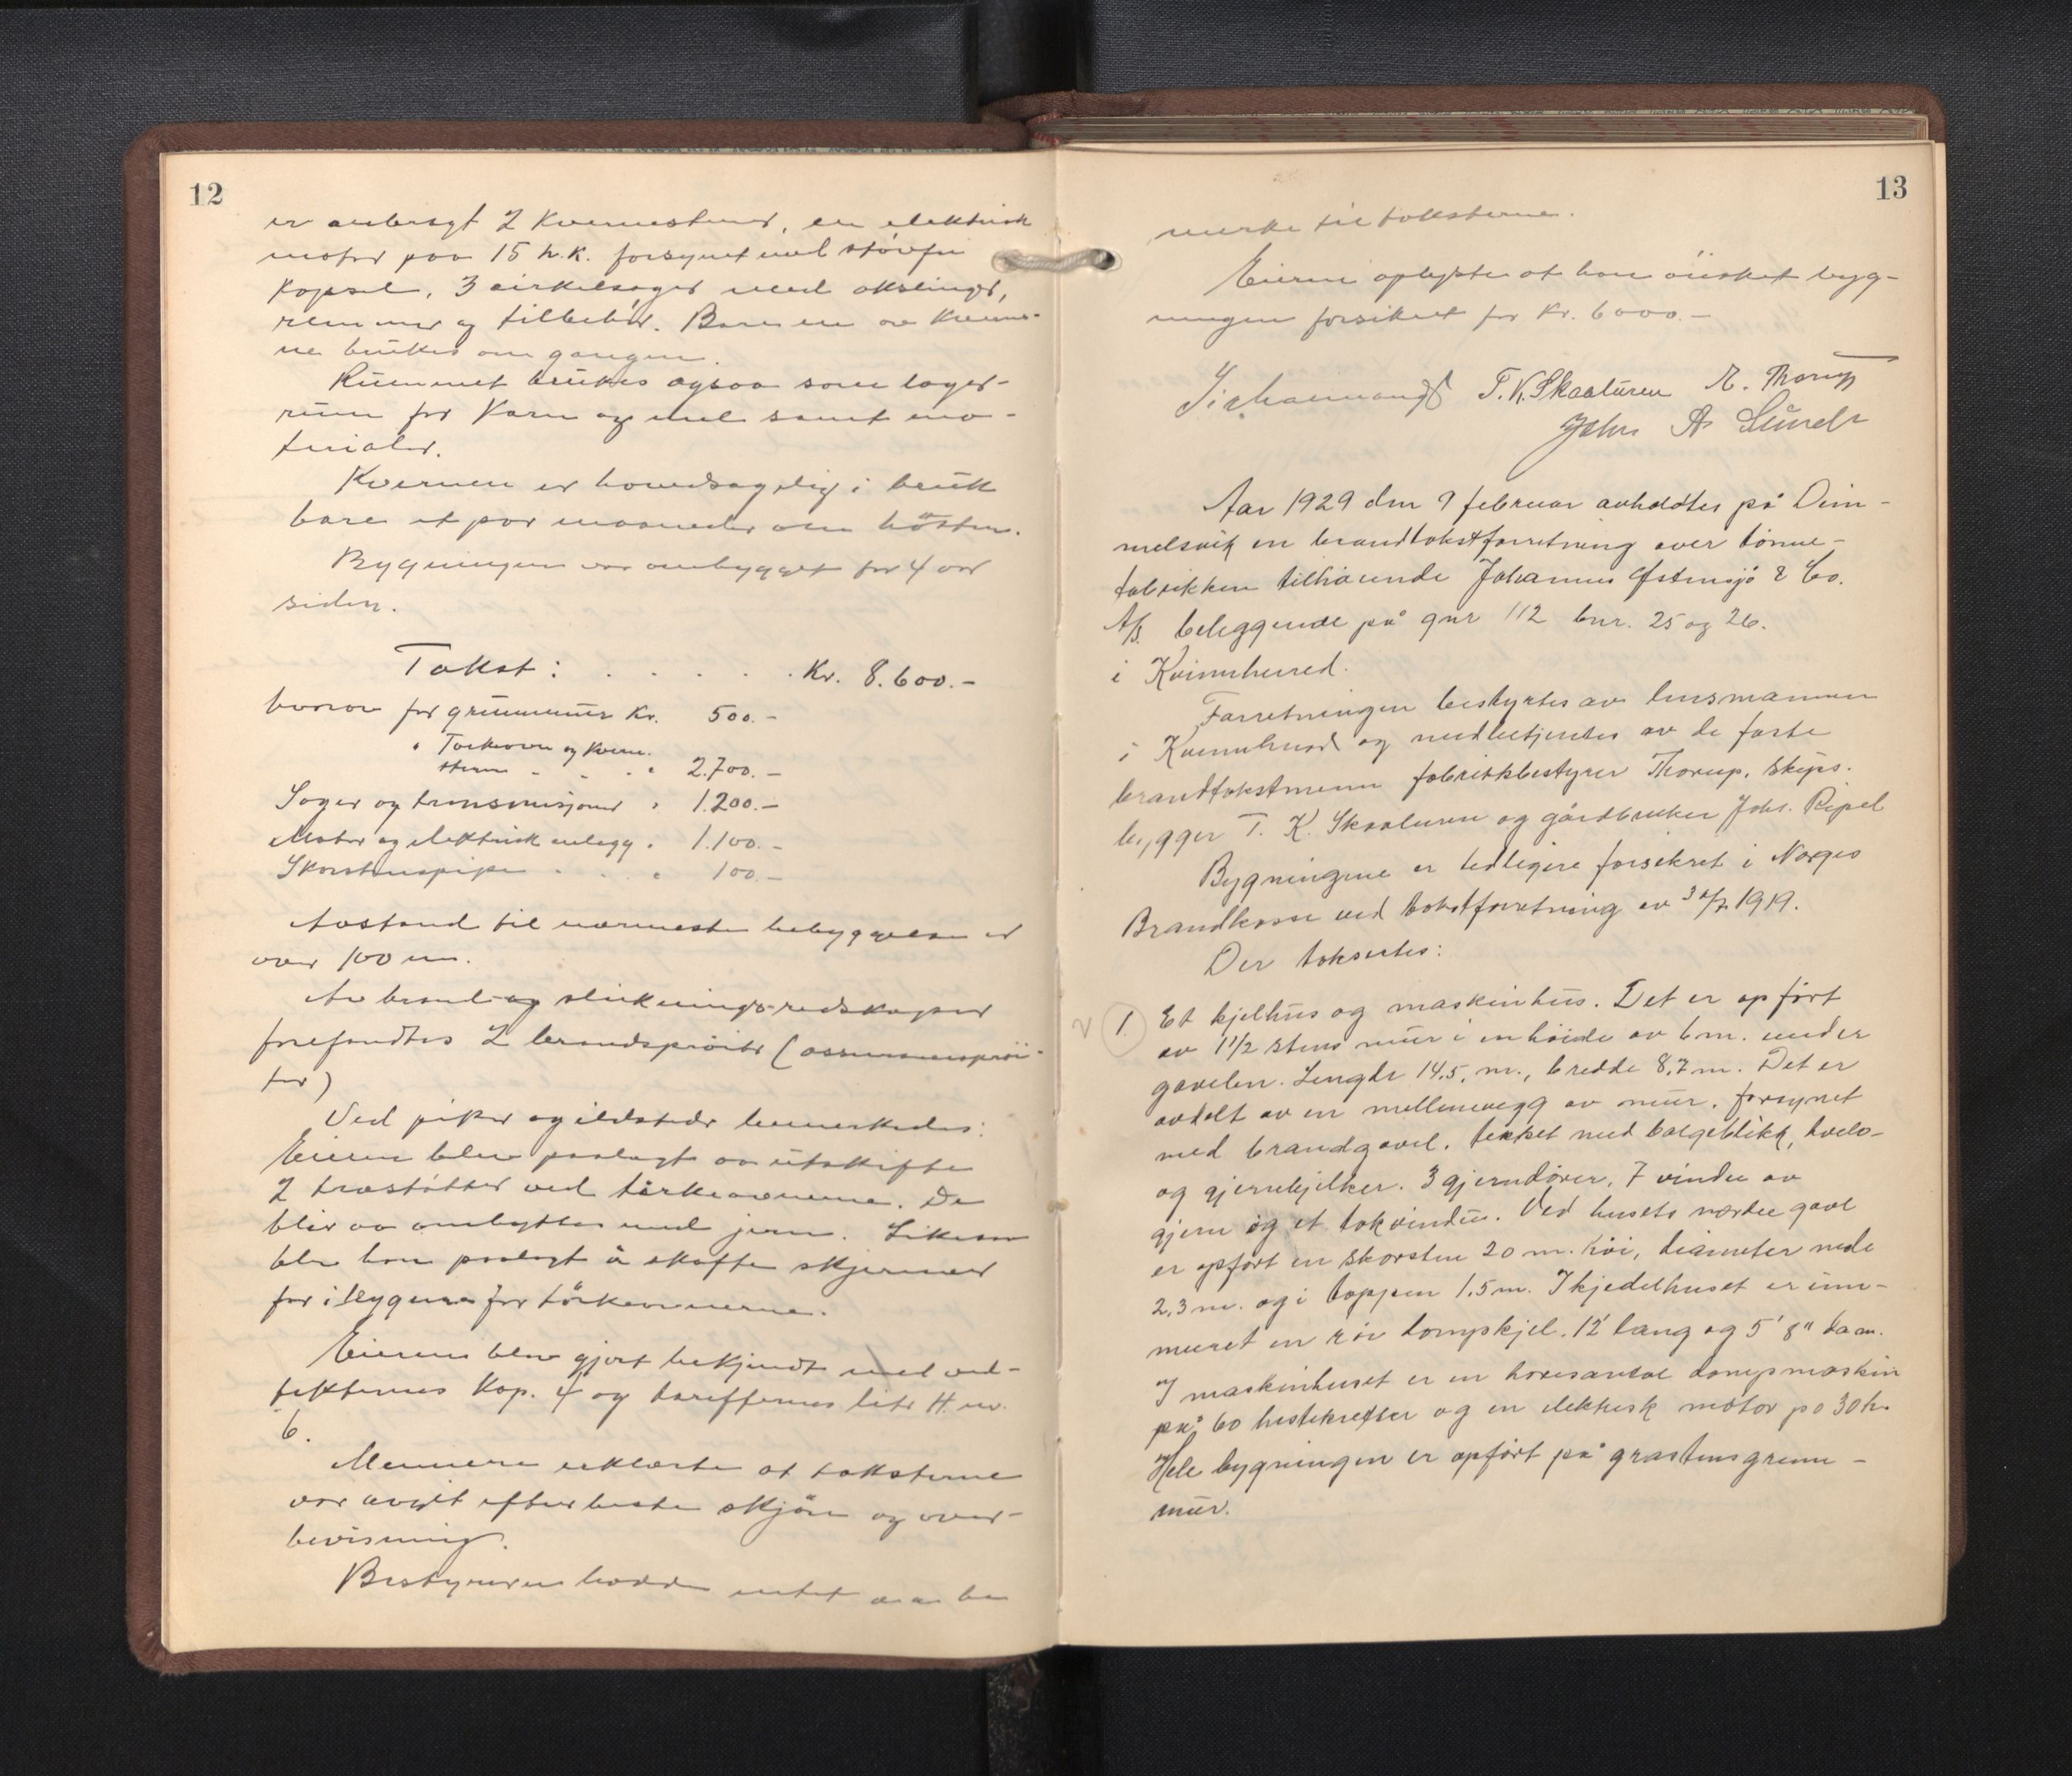 12
er anbragt 2 kvernstener, en elektrisk
motor paa 15 h.k. forsynet med støvfri
kapsel, 3 cirkelsager med akslinger,
remmer og tilbehör. Bare en av kverne-
ne brukes om gangen.
Rummet brukes ogsaa som lager-
rum for korn og mel samt ma-
terialer.
Kvernen er hovedsagelig i bruk
bare et par maaneder om hösten.
Bygningen var ombygget for 4 aar
siden.
Takst: . . . . . Kr. 8.600.-
herav for grunnmur Kr. 500.-
" Torkeovn og kvern-
stener - . . " 2.700.-
Sager og transmisjoner " 1.200.-
Motor og elektrisk anlegg " 1.100.-
Skorstenspipe . . . " 100.-
Avstand til nærmeste bebyggelse er
over 100 m.
Av brand- og slukningsredskaper
forefandtes 2 brandspröiter (assuransespröi-
ter)
Ved piper og ildsteder bemerkedes:
Eieren blev paalagt aa utskifte
2 træstötter ved törkeovnene. De
blir aa ombytte med jern. Likesaa
blev han paalagt å skaffe skjermer
for ilegget for törkeovnerne.
Eieren blev gjort bekjendt med ved-
tekternes kap. 4 og tariffernes litr H. nr.
6.
Mennene erklærte at taksterne
var avgit efter beste skjön og over-
bevisning.
Bestyreren hadde intet aa be
13
merke til taksterne.
Eieren oplyste at han önsket byg-
ningen forsikret for Kr. 6000.-
T. K. Skaaluren M. Thorup
Johs A. Sunde
Aar 1929 den 9 februar avholdtes på Dim-
melsvik en brandtakstforretning over tönne-
fabrikken tilhörende Johannes Östensjö & Co.
A/S. beliggende på gnr 112 bnr. 25 og 26.
i Kvinnherred.
Forretningen bestyrtes av lensmannen
i Kvinnherad og medbetjentes av de faste
brandtakstmenn fabrikkbestyrer Thorup, skips-
bygger T. K. Skaaluren og gårdbruker Johs. Ripel
Bygningene er tidligere forsikret i Norges
Brandkasse ved takstforretning av 30/7 1919.
Der taksertes:
1. Et kjelhus og maskinhus. Det er opfört
av 1 1/2 stens mur i en höide av 6 m. under
gavelen. Lengde 14,5, m., bredde 8,7 m. Det er
avdelt av en mellemvegg av mur, forsynet
med brandgavel, tekket med bølgeblikk, tvelo-
og gjernbjelker. 3 gjerndörer, 7 vindu av
gjern og et takvindu. Ved husets nordre gavl
er opfört en skorsten 20 m. höi, diameter nede
2,3 m. og i toppen 1,5 m. I kjedelhuset er inn-
muret en rör dampkjel. 12' lang og 5' 8" diam.
I maskinhuset er en horisontal dampmaskin
på 60 hestekrefter og en elektrisk motor på 30 h.
Hele bygningen er opfört på gråstensgrunn-
mur.